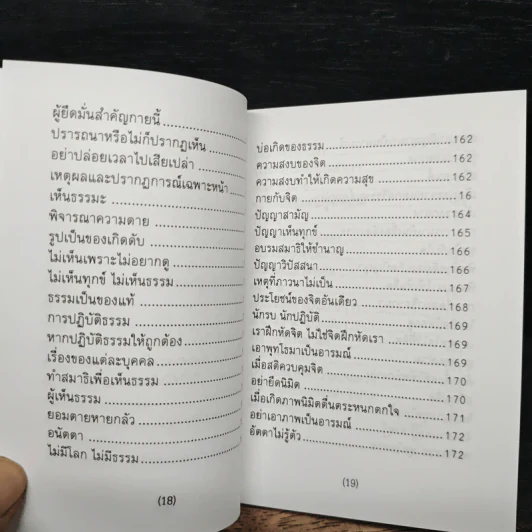 ผู้ยึดมั่นสำคัญกายนี้
ปรารถนาหรือไม่ก็ปรากฏเห็น
อย่าปล่อยเวลาไปเสียเปล่า
เหตุผลและปรากฏการณ์เฉพาะหน้า
เห็นธรรมะ
พิจารณาความตาย
รูปเป็นของเกิดดับ
ไม่เห็นเพราะไม่อยากดู
ไม่เห็นทุกข์ ไม่เห็นธรรม
ธรรมเป็นของแท้
การปฏิบัติธรรม
หากปฏิบัติธรรมให้ถูกต้อง
เรื่องของแต่ละบุคคล
ทำสมาธิเพื่อเห็นธรรม
ผู้เห็นธรรม
ยอมตายหายกลัว
อนัตตา
ไม่มีโลก ไม่มีธรรม
(18)
บ่อเกิดของธรรม 162
ความสงบของจิต 162
ความสงบทำให้เกิดความสุข 162
กายกับจิต 16
ปัญญาสามัญ 164
ปัญญาเห็นทุกข์ 165
อบรมสมาธิให้ชำนาญ 166
ปัญญาวิปัสสนา 166
เหตุที่ภาวนาไม่เป็น 167
ประโยชน์ของจิตอันเดียว 168
นักรบ นักปฏิบัติ 169
เราฝึกหัดจิต ไม่ใช่จิตฝึกหัดเรา 169
เอาพุทโธมาเป็นอารมณ์ 169
เมื่อสติควบคุมจิต 170
อย่ายึดนิมิต 170
เมื่อเกิดภาพนิมิตตื่นตระหนกตกใจ 171
อย่าเอาภาพเป็นอารมณ์ 172
อัตตาไม่รู้ตัว 172
(19)